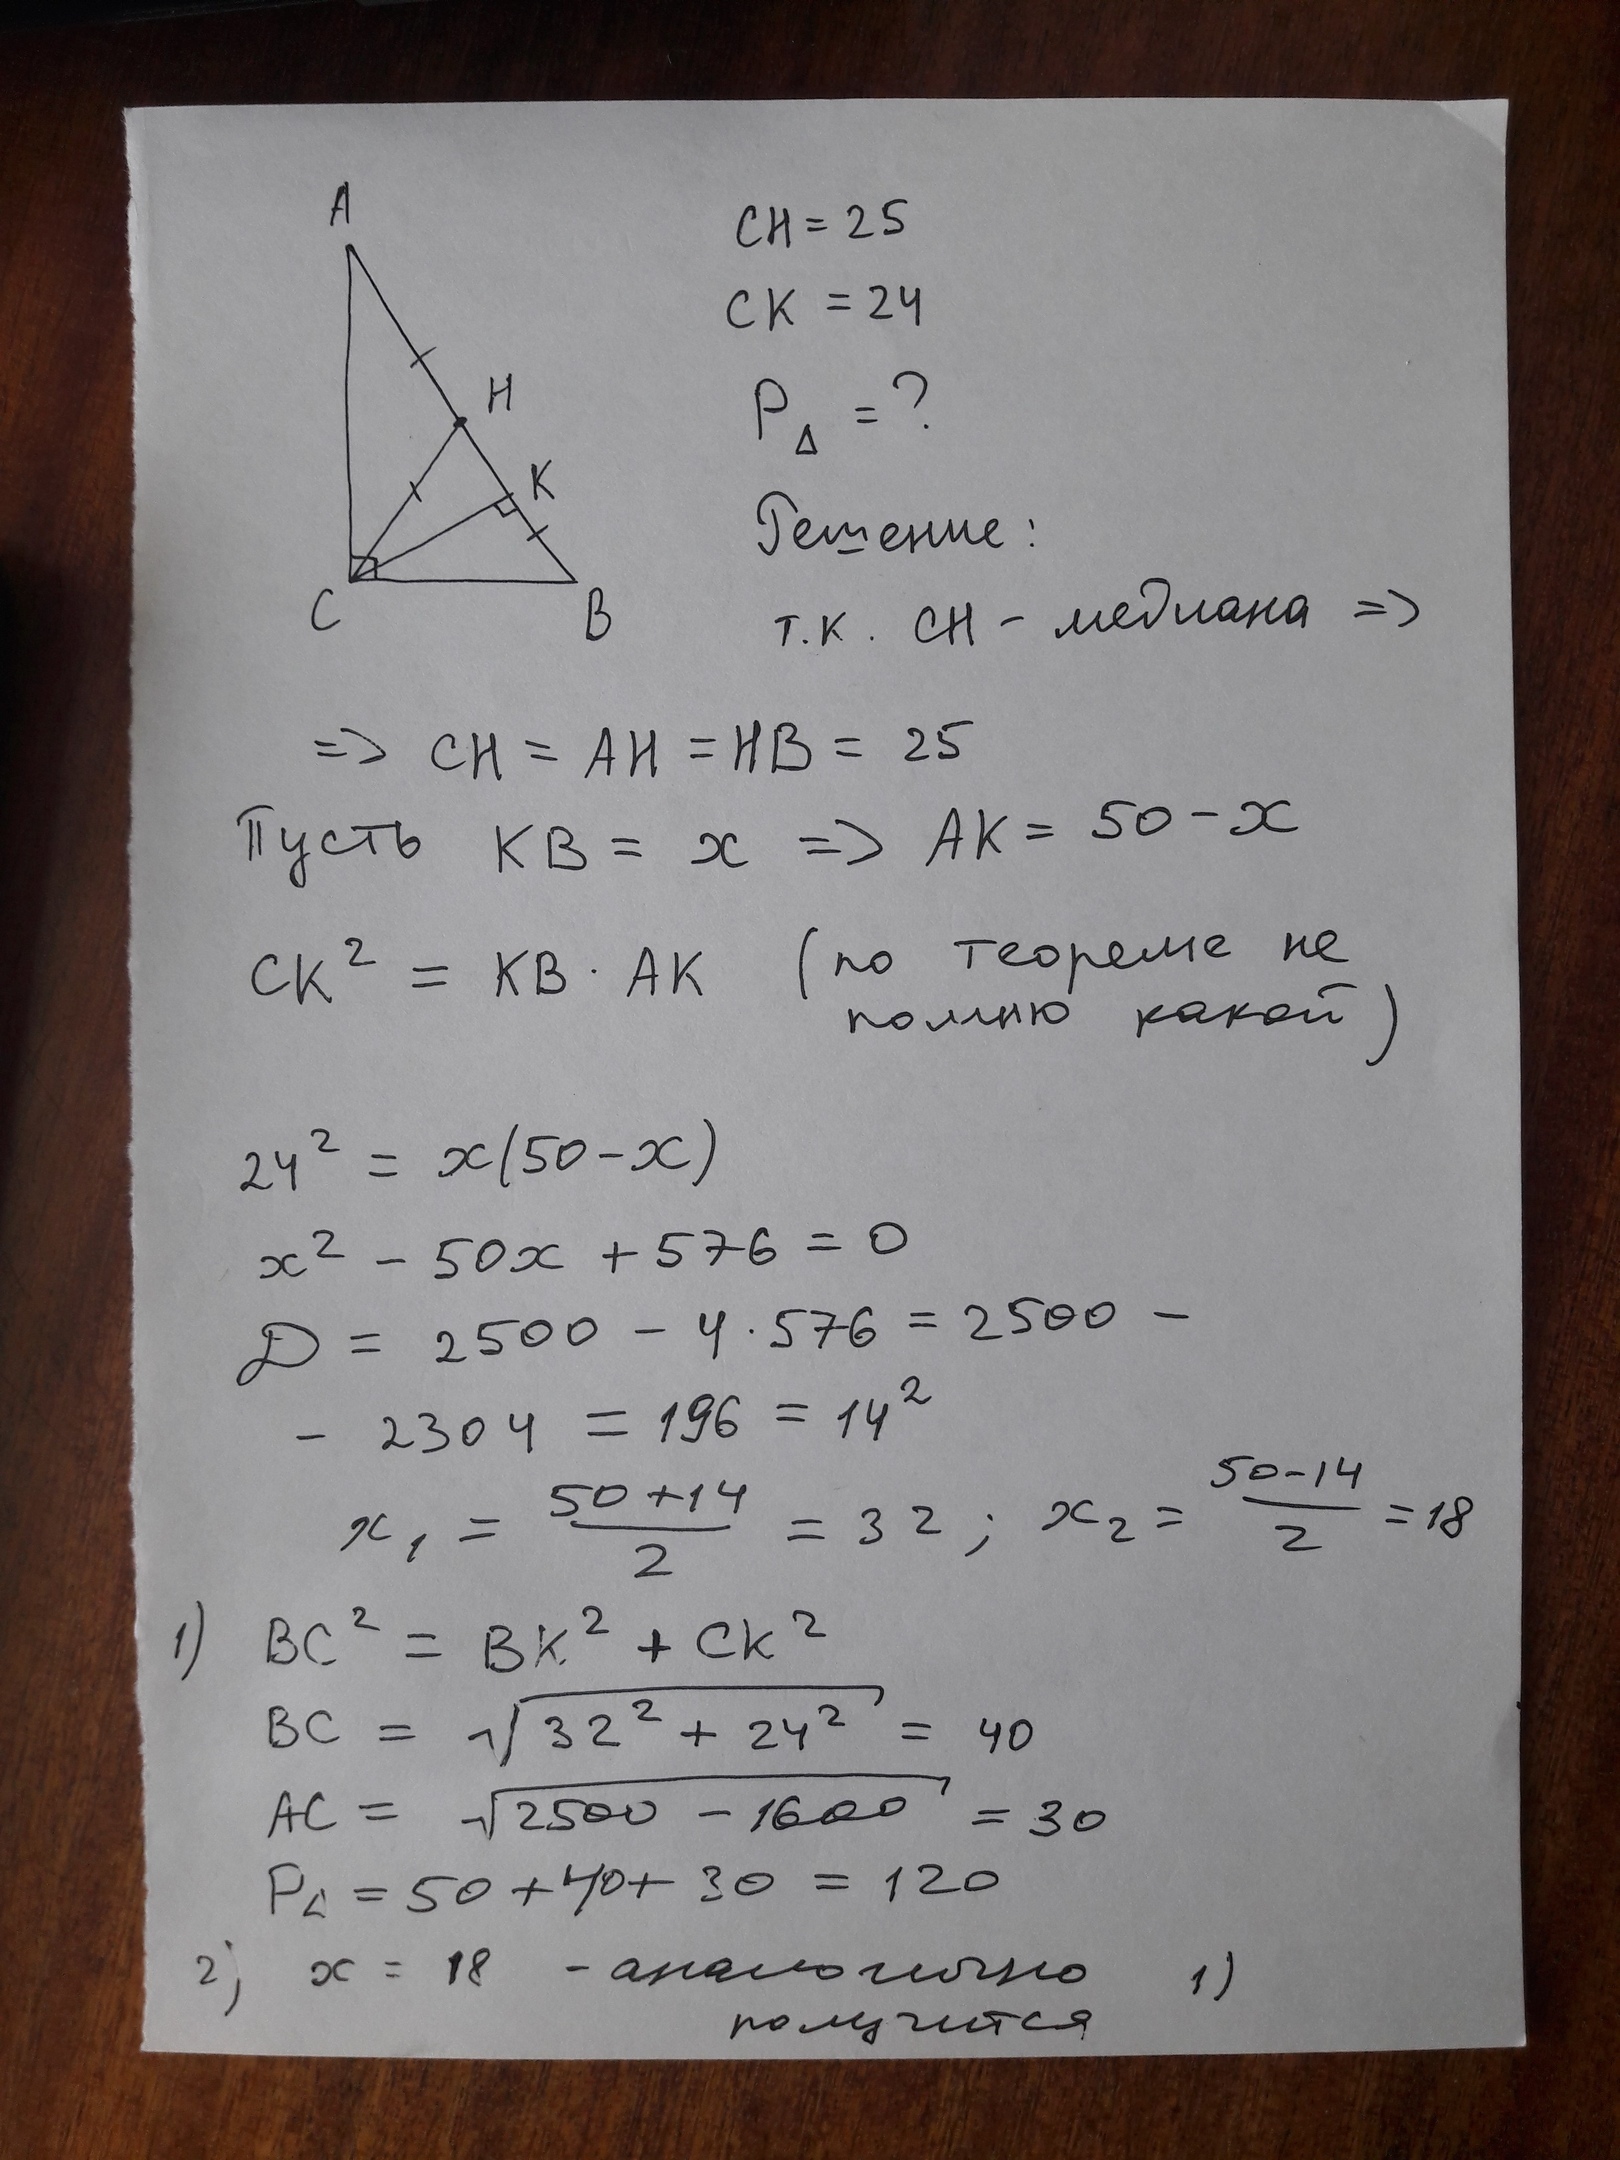 A
H
K
C
B
CH = 25
CK = 24
P△ = ?
Решение:
т.к. CH - медиана =>
=> CH = AH = HB = 25
Пусть KB = x => AK = 50 - x
CK² = KB · AK (по теореме не
помню какой)
24² = x(50 - x)
x² - 50x + 576 = 0
D = 2500 - 4 · 576 = 2500 -
- 2304 = 196 = 14²
x₁ = (50 + 14)/2 = 32 ; x₂ = (50 - 14)/2 = 18
1) BC² = BK² + CK²
BC = √(32² + 24²) = 40
AC = √(2500 - 1600) = 30
P△ = 50 + 40 + 30 = 120
2) x = 18 - аналогично 1)
получится